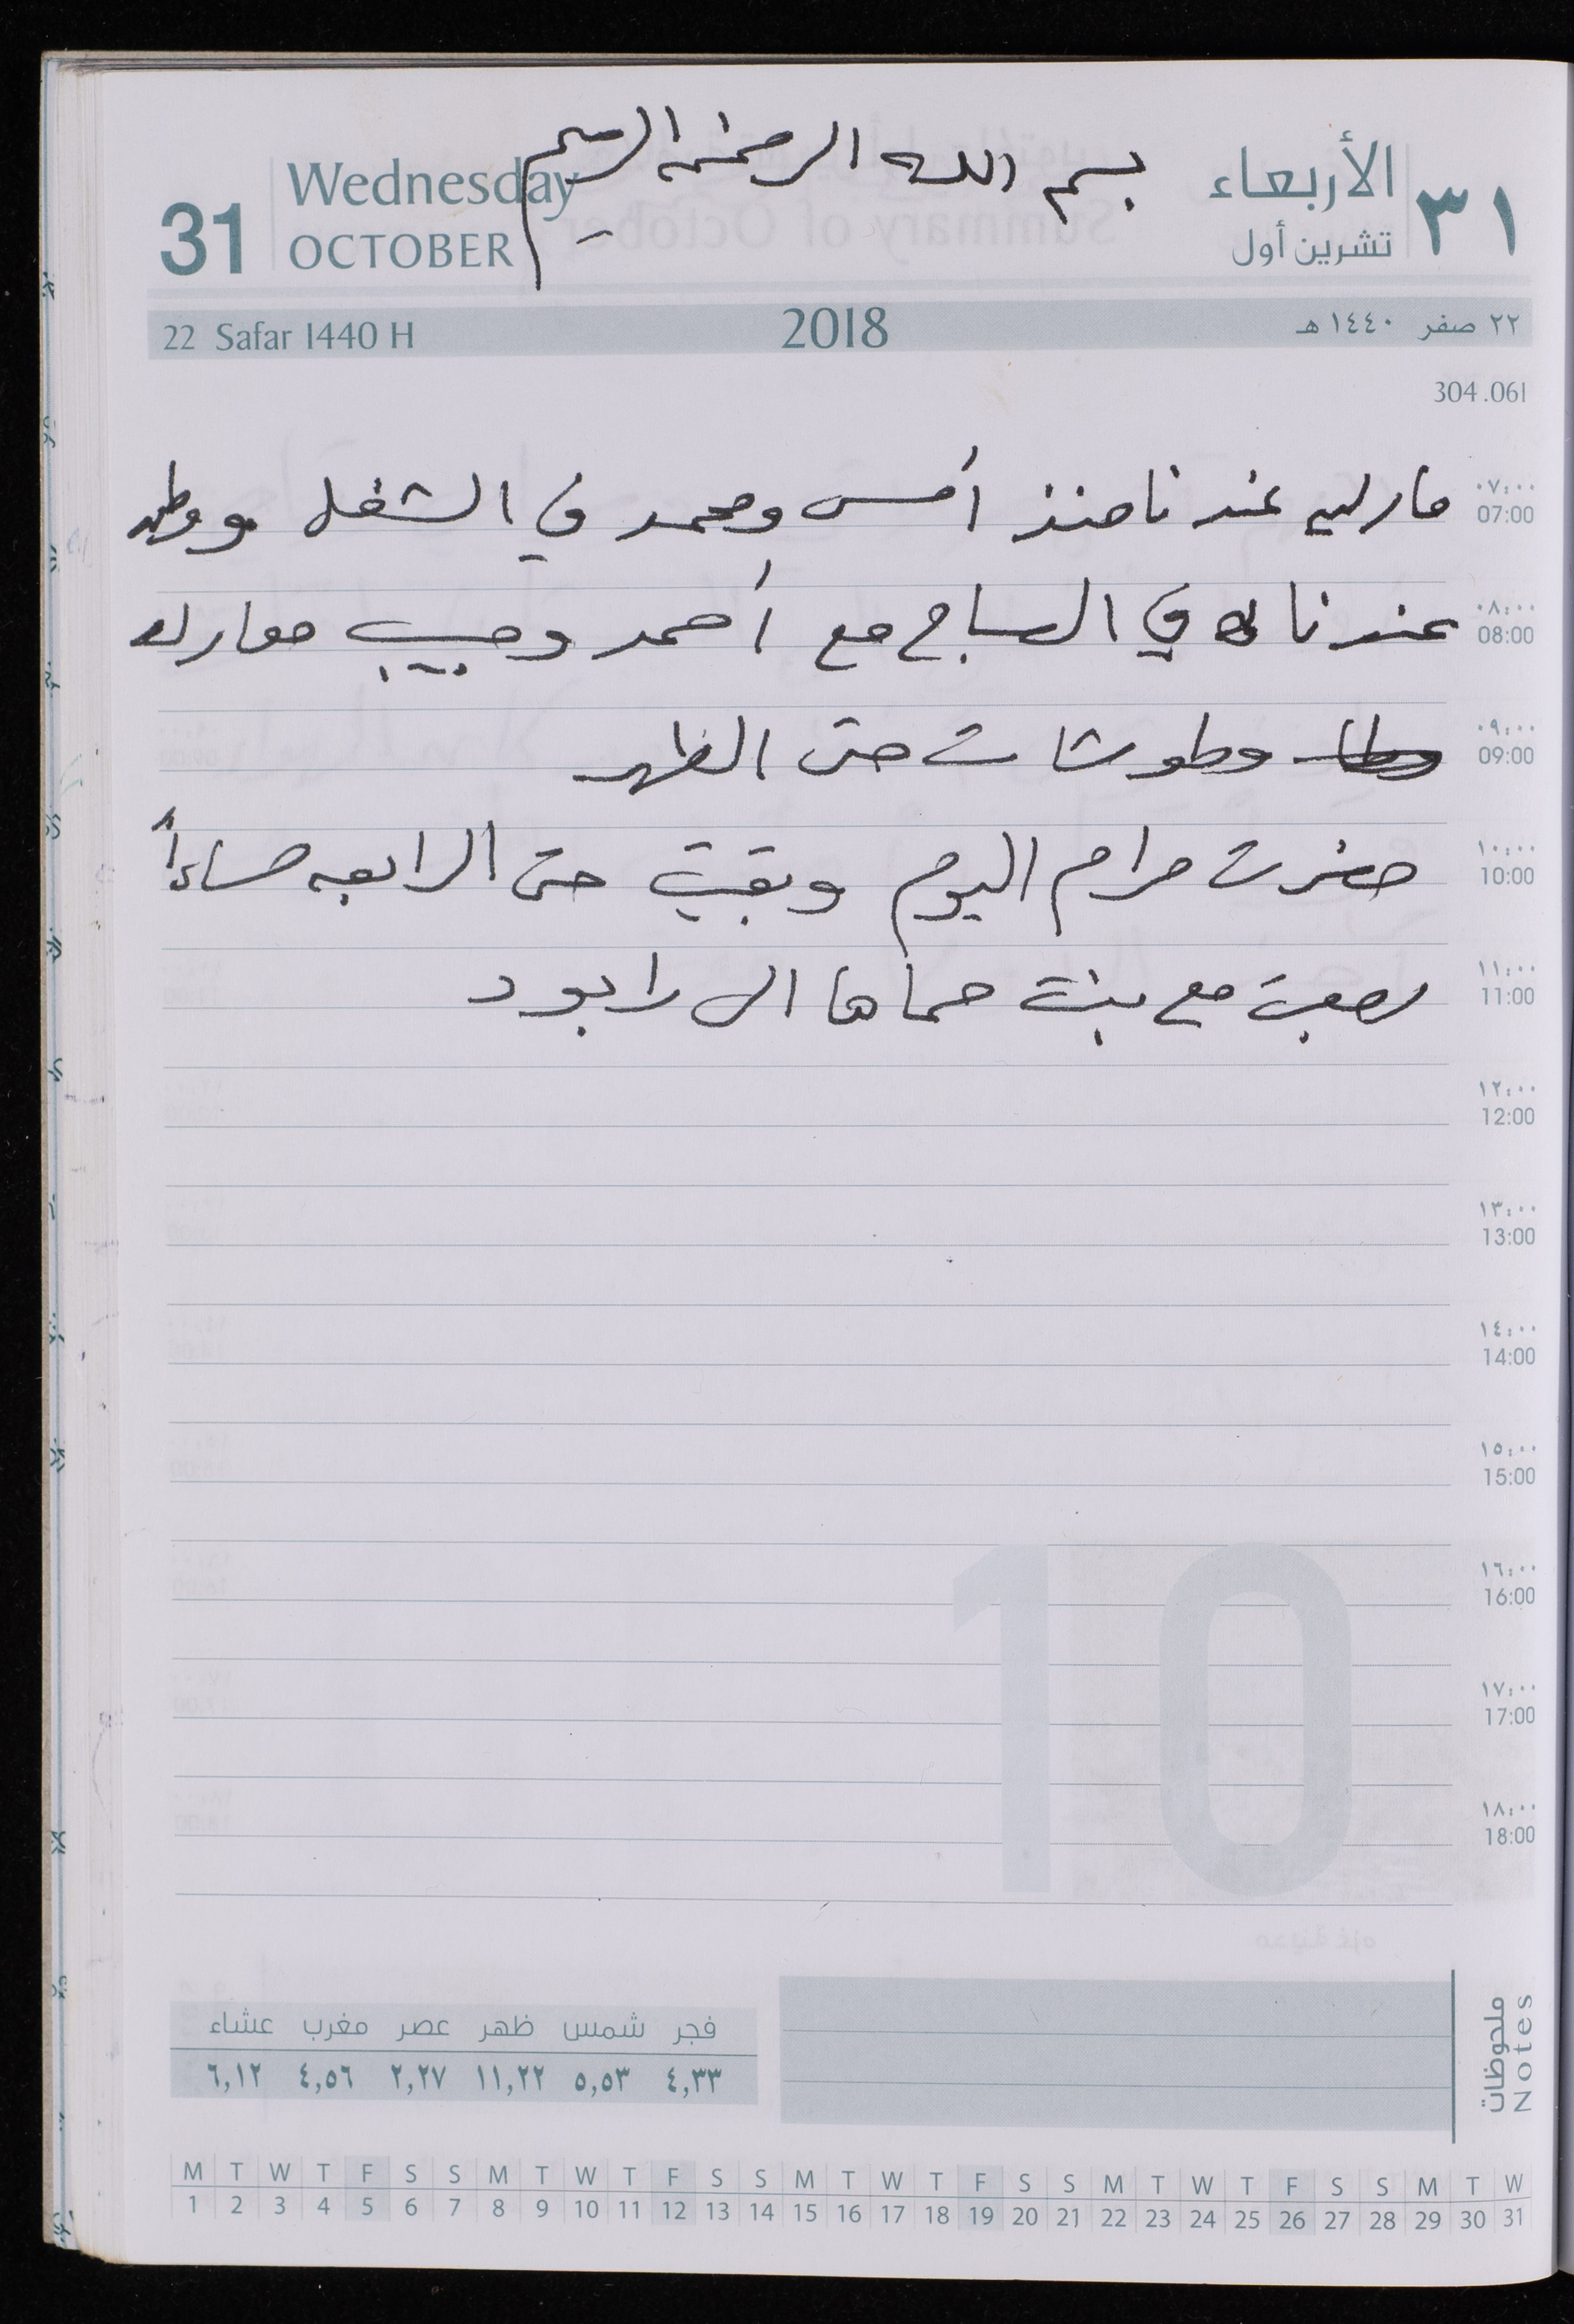 ٣١
الأربعاء
تشرين أول
بسم الله الرحمن الرحيم
31
Wednesday
OCTOBER
٢٢ صفر ١٤٤٠ هـ
2018
22 Safar 1440 H
304.061
٠٧:٠٠
07:00
ماريه عندنا منذ أمس ومحمد في الشغل
٠٨:٠٠
08:00
عندنا في الصباح مع أحمد وحبيب معارك
٠٩:٠٠
09:00
وطوشات حتى الظهر
١٠:٠٠
10:00
حضرت مرام اليوم وبقيت حتى الرابعه مساءاً
١١:٠٠
11:00
مع بنت حماها الى رابود
١٢:٠٠
12:00
١٣:٠٠
13:00
١٤:٠٠
14:00
١٥:٠٠
15:00
١٦:٠٠
16:00
١٧:٠٠
17:00
١٨:٠٠
18:00
10
ملحوظات
Notes
فجر شمس ظهر عصر مغرب عشاء
٤,٣٣ ٥,٥٣ ١١,٢٢ ٢,٢٧ ٤,٥٦ ٦,١٢
M T W T F S S M T W T F S S M T W T F S S M T W T F S S M T W
1 2 3 4 5 6 7 8 9 10 11 12 13 14 15 16 17 18 19 20 21 22 23 24 25 26 27 28 29 30 31